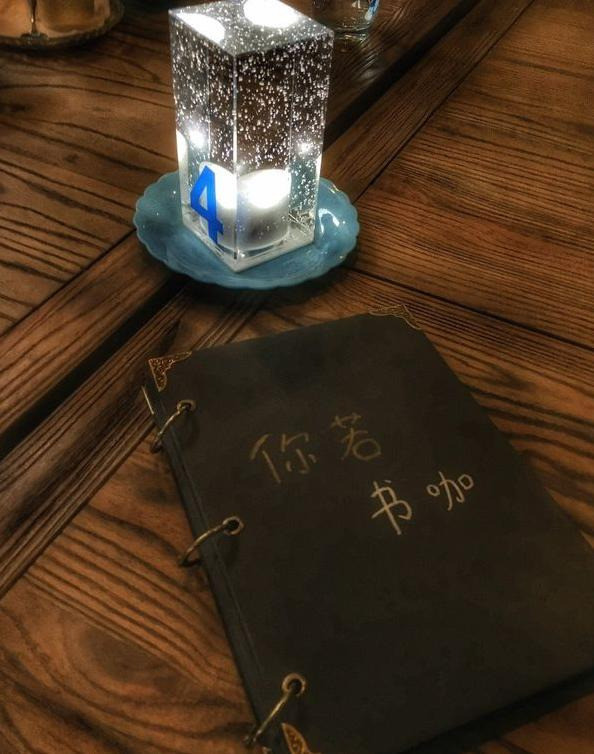 4
你若
书咖